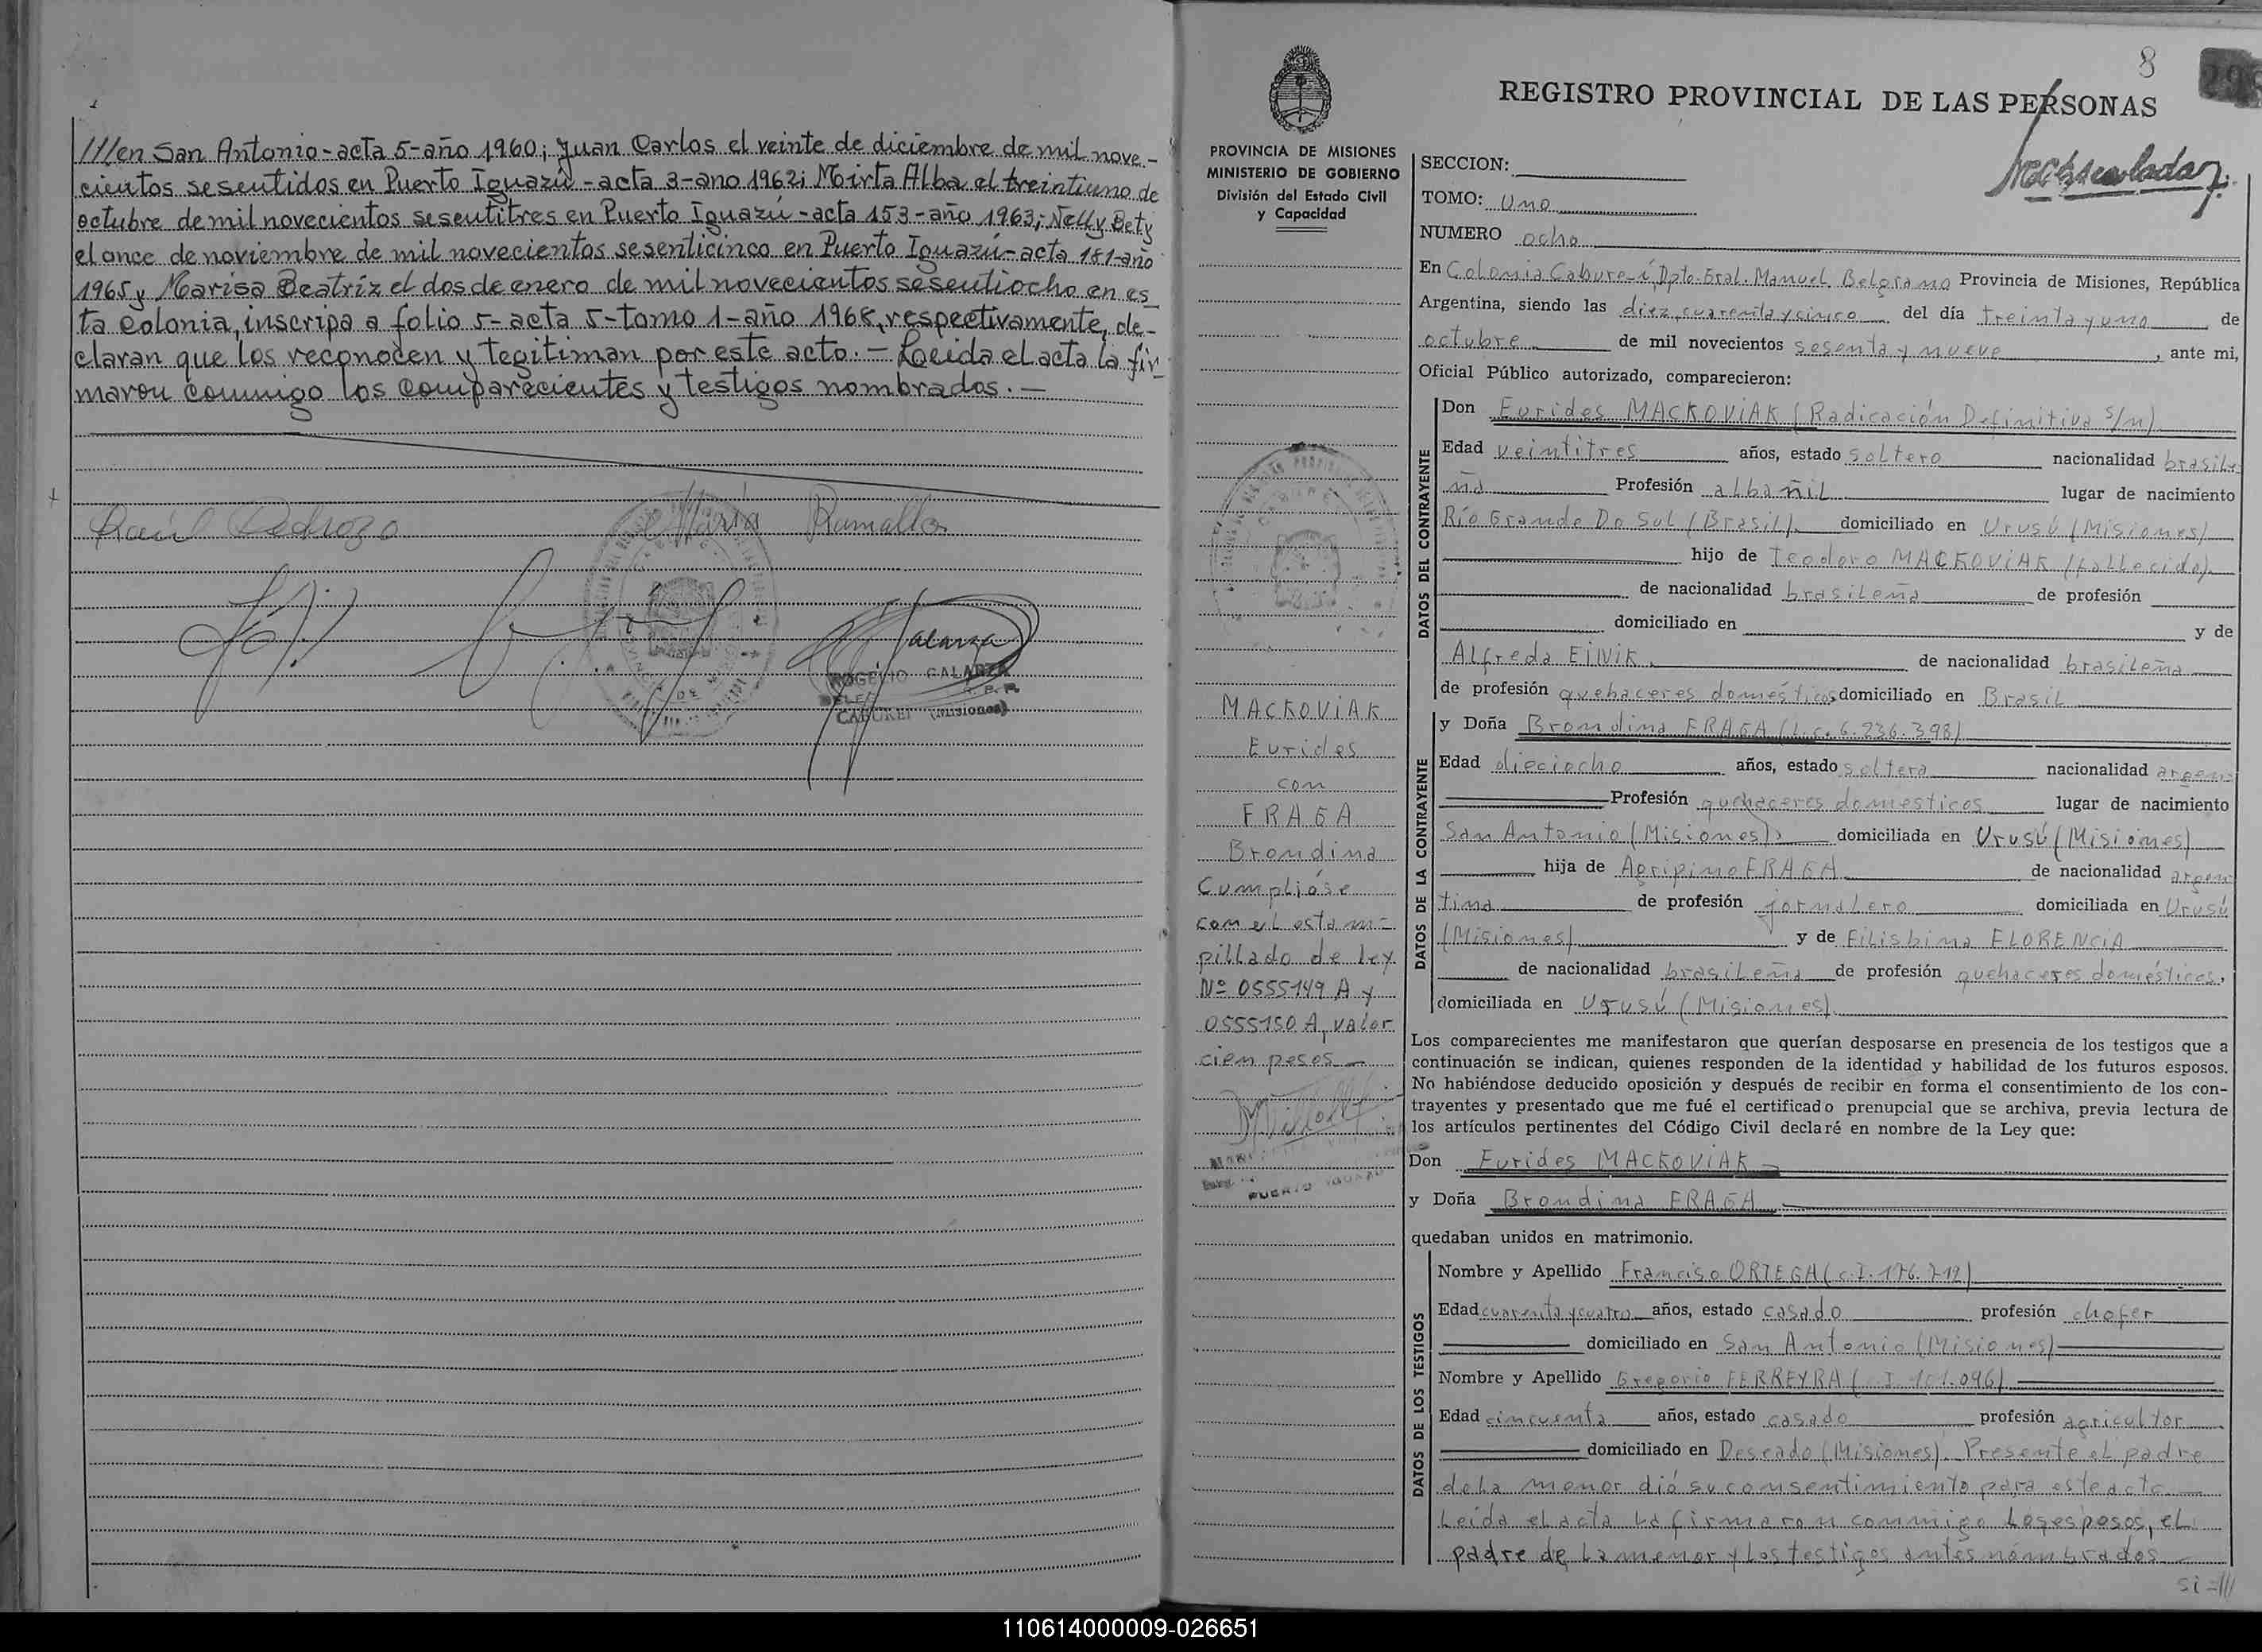 ///en San Antonio-acta 5-año 1960; Juan Carlos el veinte de diciembre de mil nove-
cientos sesentidos en Puerto Iguazú-acta 3-ano 1962; Mirta Alba el treintiuno de
octubre de mil novecientos sesentitres en Puerto Iguazú-acta 153-año 1963; Nelly Bety
el once de noviembre de mil novecientos sesenticinco en Puerto Iguazú-acta 181-año
1965 y Marisa Beatriz el dos de enero de mil novecientos sesentiocho en es-
ta colonia, inscripa a folio 5-acta 5-tomo 1-año 1968, respectivamente, de-
claran que los reconocen y legitiman por este acto.- Leida el acta la fir-
maron conmigo los comparecientes y testigos nombrados.-
Raúl Pedrozo
María Ramallo
Galarza
ROGELIO GALARZA
CABUREI (Misiones)
8
REGISTRO PROVINCIAL DE LAS PERSONAS
PROVINCIA DE MISIONES
MINISTERIO DE GOBIERNO
División del Estado Civil
y Capacidad
SECCION:
TOMO: Uno
NUMERO ocho
En Colonia Cabure-í, Dpto. Gral. Manuel Belgrano Provincia de Misiones, República
Argentina, siendo las diez, cuarenta y cinco del día treinta y uno de
octubre de mil novecientos sesenta y nueve, ante mi,
Oficial Público autorizado, comparecieron:
DATOS DEL CONTRAYENTE
Don Eurides MACKOVIAK (Radicación Definitiva s/n)
Edad veintitres años, estado soltero nacionalidad brasile
ña Profesión albañil lugar de nacimiento
Río Grande Do Sul (Brasil), domiciliado en Urusú (Misiones)
hijo de Teodoro MACKOVIAK (fallecido)
de nacionalidad brasileña de profesión
domiciliado en y de
Alfreda EINIK, de nacionalidad brasileña
de profesión quehaceres domésticos domiciliado en Brasil
DATOS DE LA CONTRAYENTE
y Doña Brondina FRAGA (L.c. 6.236.398)
Edad dieciocho años, estado soltera nacionalidad argen
Profesión quehaceres domesticos lugar de nacimiento
San Antonio (Misiones), domiciliada en Urusú (Misiones)
hija de Agripino FRAGA de nacionalidad argen
tina de profesión jornalero domiciliada en Urusú
(Misiones) y de Filisbina FLORENCIA
de nacionalidad brasileña de profesión quehaceres domésticos,
domiciliada en Urusú (Misiones)
Los comparecientes me manifestaron que querían desposarse en presencia de los testigos que a
continuación se indican, quienes responden de la identidad y habilidad de los futuros esposos.
No habiéndose deducido oposición y después de recibir en forma el consentimiento de los con-
trayentes y presentado que me fué el certificado prenupcial que se archiva, previa lectura de
los artículos pertinentes del Código Civil declaré en nombre de la Ley que:
Don Eurides MACKOVIAK
y Doña Brondina FRAGA
quedaban unidos en matrimonio.
DATOS DE LOS TESTIGOS
Nombre y Apellido Franciso ORTEGA (c.I. 176.719)
Edad cuarenta y cuatro años, estado casado profesión chofer
domiciliado en San Antonio (Misiones)
Nombre y Apellido Gregorio FERREYRA
Edad cincuenta años, estado casado profesión agricultor
domiciliado en Deseado (Misiones). Presente el padre
de la menor dió su consentimiento para este acto
Leida el acta la firmaron conmigo los esposos, el
padre de la menor y los testigos antes nombrados
si=///
MACKOVIAK
Eurides
con
FRAGA
Brondina
Cumplióse
con el estam-
pillado de ley
Nº 0555149 A y
0555150 A, valor
cien pesos
PUERTO IGUAZU
110614000009-026651